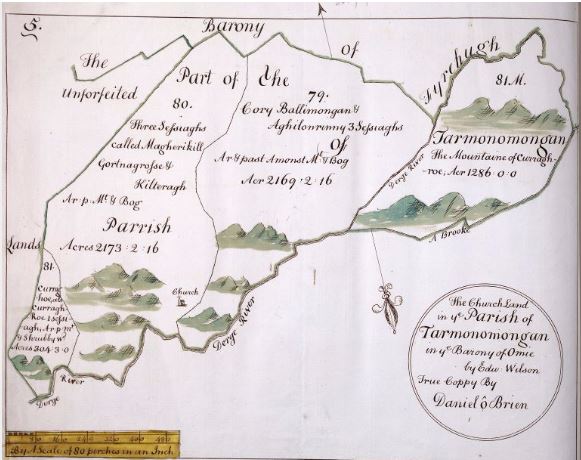 5.
Barony of Tyrehugh
The
Unforfeited
Lands
Part of the
Parrish
Of
Tarmonomongan
80.
Three Sessiaghs
called Magherikill
Gortnagrosse &
Kilteragh
Ar: p. Mt. & Bog
Acres 2173 : 2 : 16
79.
Cory Ballimongan &
Aghilonrinny 3 Sessiaghs
Ar & past Amonst Mt. & Bog
Acr 2169 : 2 : 16
81. M.
The Mountaine of Curragh-
roe, Acr 1286 : 0 : 0
81.
Curragh
Roe 1 Sessi
Acres 304 : 3 : 0
Church
Derge River
A Brooke
Derge River
Derge River
The Church Land
in ye Parish of
Tarmonomongan
in ye Barony of Omie
by Edw. Wilson
True Coppy By
Daniel ô Brien
80 160 240 320 400 480
By A Scale of 80 perches in an Inch